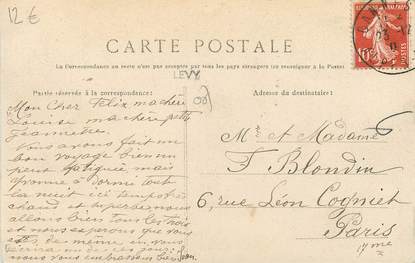 12 €
CARTE POSTALE
La Correspondance au recto n'est pas acceptée par tous les pays étrangers (se renseigner à la Poste)
LEVY
Partie réservée à la correspondance
Adresse du destinataire:
Mon cher Felix ma chère
Louise ma chère petite
Jeannette.
Nous avons fait un
bon voyage bien un
peu fatiguée mais
Yvonne a dormi tout
la nuit ici temps très
chaud et superbe nous
allons bien tous les trois
et nous esperons que vous
de meme
nous vous embrassons bien
Mr et Madame
F. Blondin
6, rue Léon Cogniet
Paris
17me
10